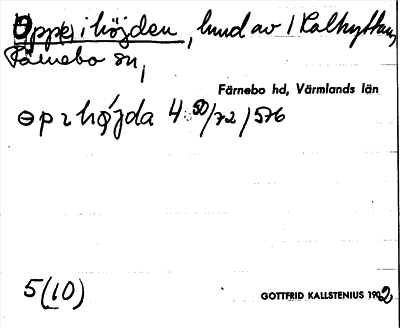 Oppe i höjden, hund av 1 Kalhyttan,
Färnebo sn,
Färnebo hd, Värmlands län
hǿjda 4:50/72/576
5(10)
GOTTFRID KALLSTENIUS 1902